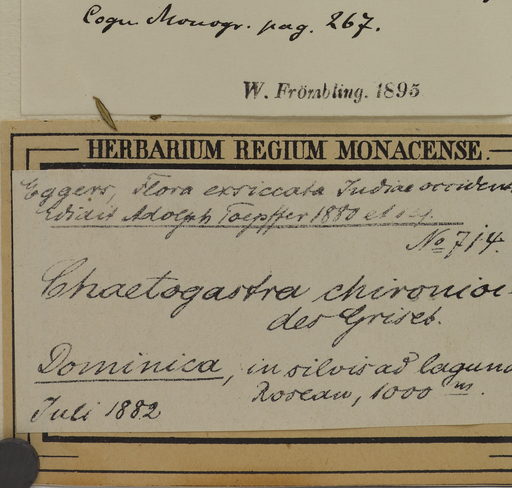 Cogn. Monogr. pag. 267.
W. Frömbling. 1895
HERBARIUM REGIUM MONACENSE.
Eggers, Flora exsiccata Indiae occidens
Edidit Adolph Toepffer 1880 et seq.
No 714.
Chaetogastra chironioi-
des Griseb.
Dominica, in silvis ad laguna
Roseau, 1000 m.
Juli 1882